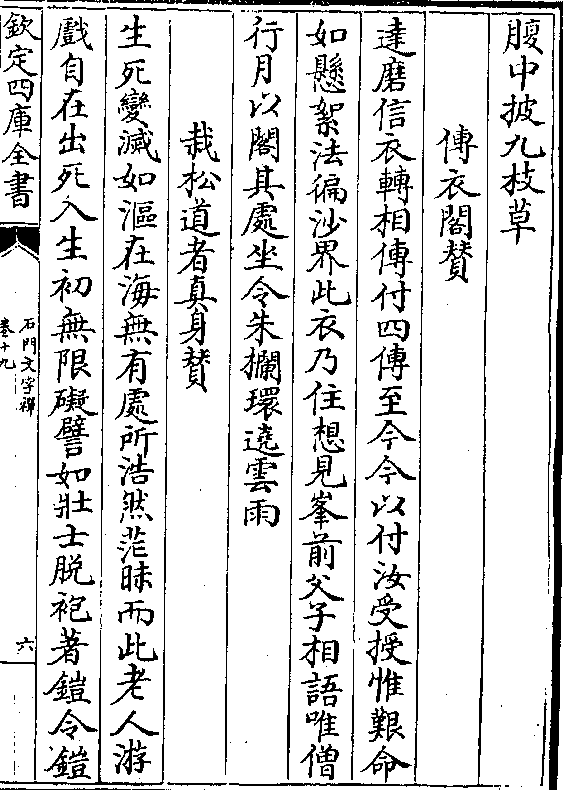 腹中披九枝草
傳衣閣賛
達磨信衣轉相傳付四傳至今今以付汝受授惟艱命
如懸絮法徧沙界此衣乃住想見峯前父子相語唯僧
行月以閣其處坐令朱欄環遶雲雨
栽松道者真身賛
生死變滅如漚在海無有處所浩然茫昧而此老人游
戲自在出死入生初無限礙譬如壯士脱袍著鎧令鎧
欽定四庫全書
石門文字禪
卷十九
六